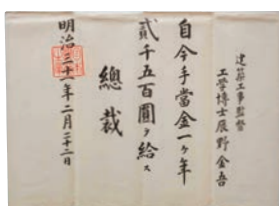 建築工事監督
工學博士辰野金吾
自今手當金一ヶ年
貳千五百圓ヲ給ス
總裁
明治三十一年二月二十二日